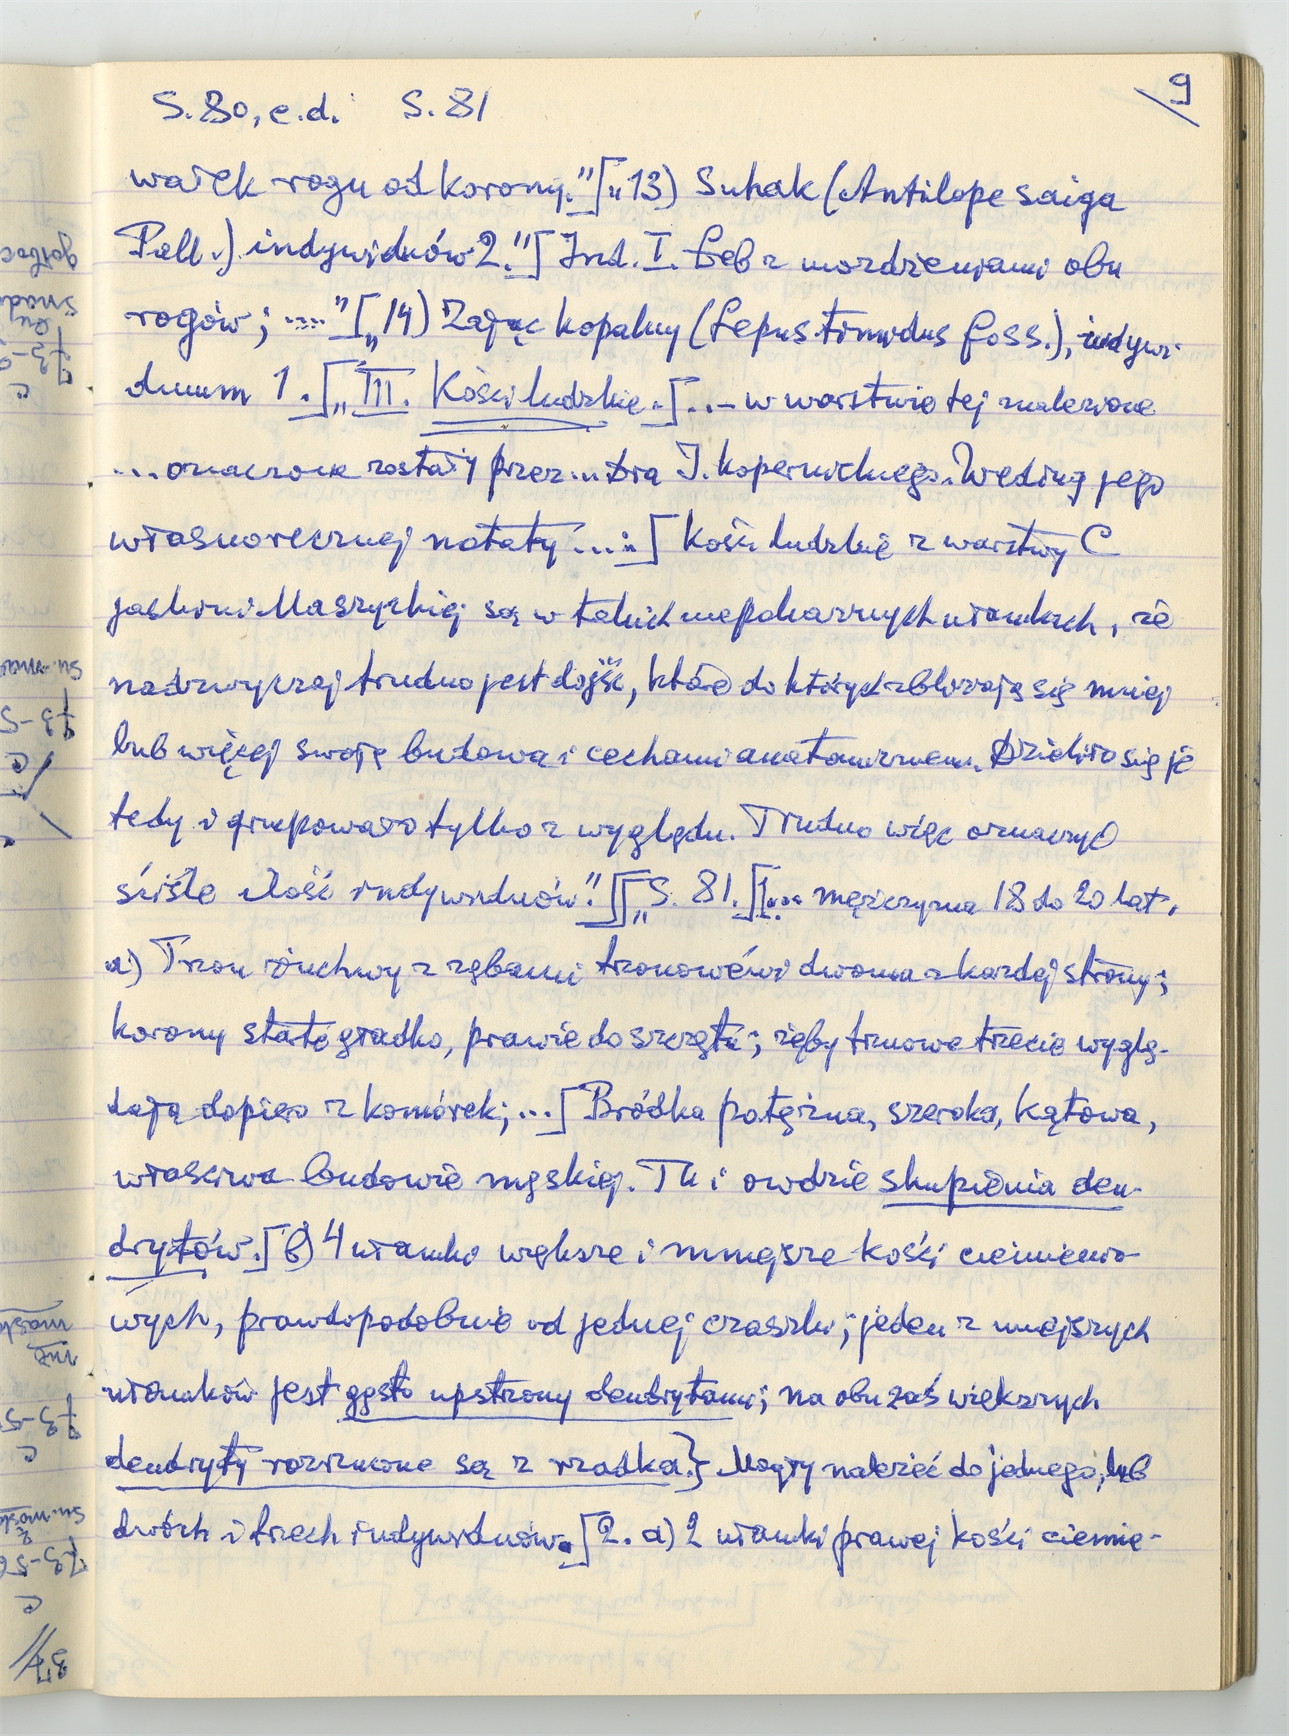 9
S. 80, c.d. S. 81
wałek rogu od korony."[„13) Suhak (Antilope saiga
Pall.) indywiduów 2."] Ind. I. Łeb z możdżeniami obu
rogów; ...."[„14) Zając kopalny (Lepus timidus foss.), indywi-
duum 1.[„III. Kości ludzkie.[... w warstwie tej znalezione
...oznaczone zostały przez... Dra I. Kopernickiego. Według jego
własnoręcznej notaty...:] Kości ludzkie z warstwy C
jaskini Maszyckiej są w takich niepokaźnych ułamkach, że
nadzwyczaj trudno jest dojść, które do których zbliżają się mniej
lub więcej swoją budową i cechami anatomicznemi. Dzielito się je
tedy i grupowało tylko z wyglądu. Trudno więc oznaczyć
ściśle ilość indywiduów."][„S. 81.]1... mężczyzna 18 do 20 lat.
a) Trzon żuchwy z zębami trzonowémi dwoma z każdej strony;
korony starte gładko, prawie do szczętu; zęby trzonowe trzecie wyglą-
dają dopiero z komórek;...] Bródka potężna, szeroka, kątowa,
właściwa budowie męskiej. Tu i owdzie skupienia den-
drytów.] b) 4 ułamki większe i mniejsze kości ciemienio-
wych, prawdopodobnie od jednej czaszki; jeden z mniejszych
ułamków jest gęsto upstrzony dendrytami; na obu zaś większych
dendryty rozrzucone są z rzadka.} Mogły należeć do jednego, lub
dwóch i trzech indywiduów.[2. a) 2 ułamki prawej kości ciemie-